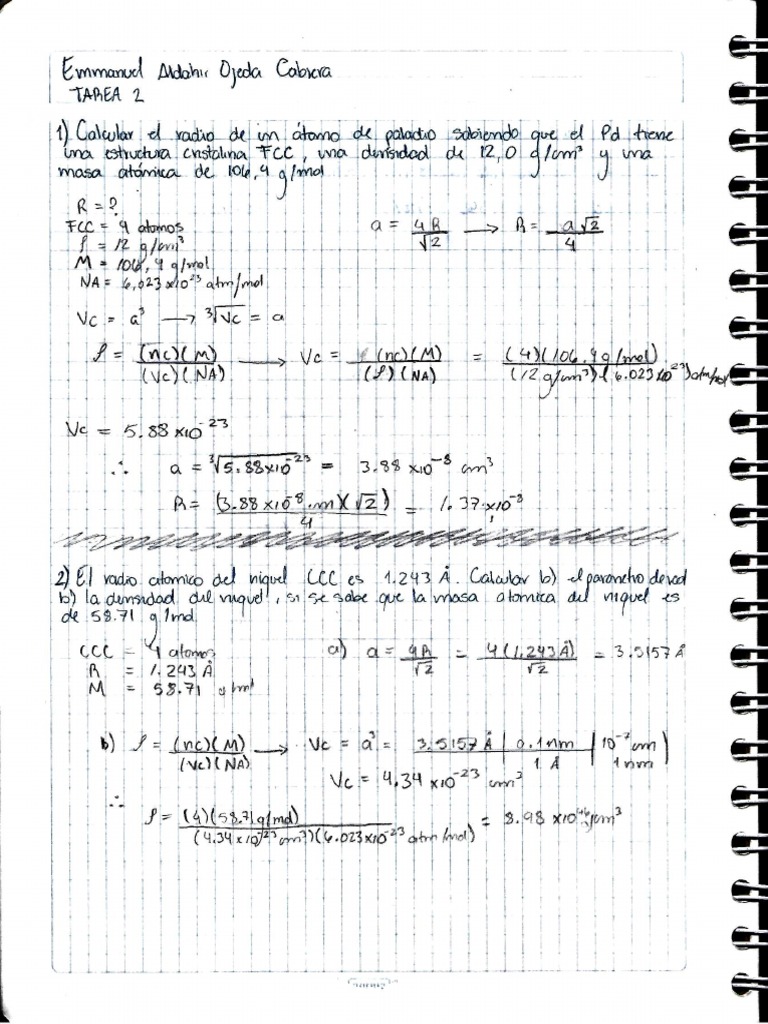 Emmanuel Aldahir Ojeda Cabrera
TAREA 2
1) Calcular el radio de un átomo de paladio sabiendo que el Pd tiene
una estructura cristalina FCC, una densidad de 12,0 g/cm³ y una
masa atómica de 106,4 g/mol
R = ?
FCC = 4 atomos
ρ = 12 g/cm³
M = 106,4 g/mol
NA = 6,023x10²³ atm/mol
a = 4R/√2 → R = a√2/4
Vc = a³ → ³√Vc = a
ρ = (nc)(M)/(Vc)(NA) → Vc = (nc)(M)/(ρ)(NA) = (4)(106.4g/mol)/(12g/cm³)(6.023x10²³)atm/mol
Vc = 5.88 x10⁻²³
∴ a = ³√5.88x10⁻²³ = 3.88 x10⁻⁸ cm³
R = (3.88x10⁻⁸ cm)(√2)/4 = 1.37 x10⁻⁸
2) El radio atomico del niquel CCC es 1.243 Å. Calcular b) el parametro de red
b) la densidad del niquel, si se sabe que la masa atomica del niquel es
de 58.71 g/mol
CCC = 4 atomos
R = 1.243 Å
M = 58.71 g/mol
a) a = 4R/√2 = 4(1.243Å)/√2 = 3.5157Å
b) ρ = (nc)(M)/(Vc)(NA) → Vc = a³ = 3.5157Å | 0.1nm | 10⁻⁷cm | / 1Å 1nm
Vc = 4.34 x10⁻²³ cm³
∴
ρ = (4)(58.71g/mol)/(4.34x10⁻²³cm³)(6.023x10⁻²³ atm/mol) = 8.98 x10⁴⁶ g/cm³